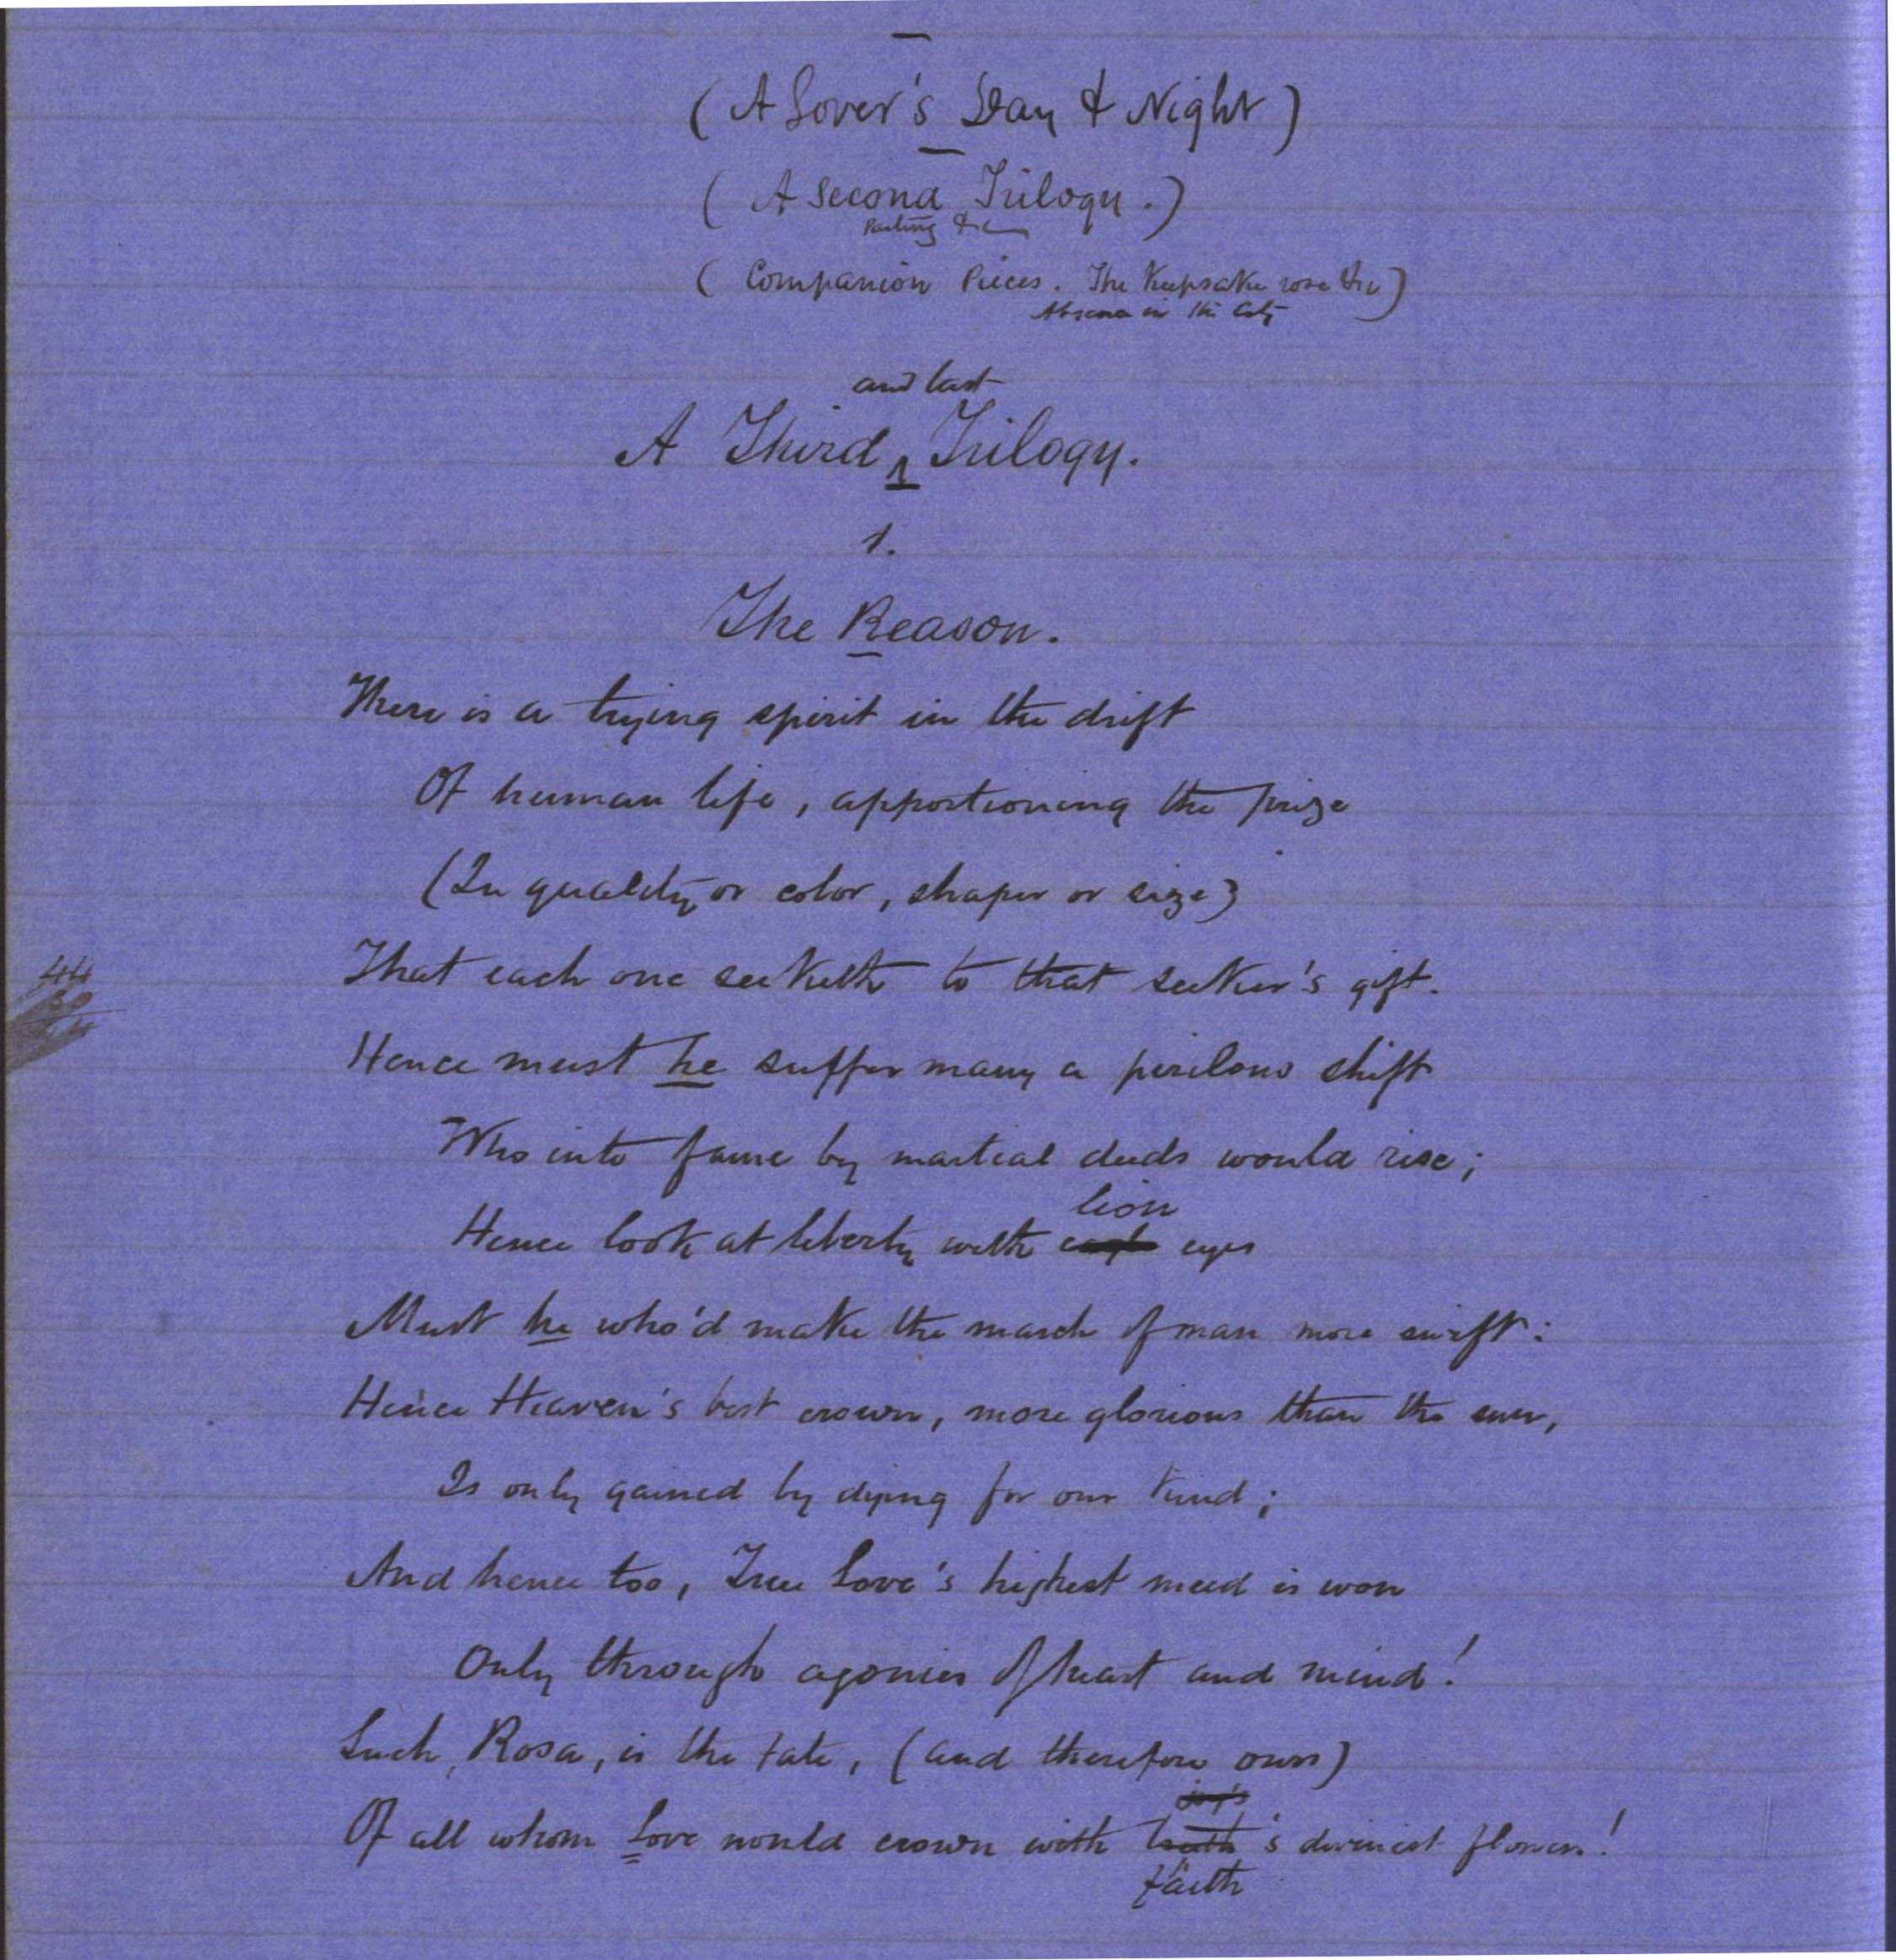 (A Lover's Day & Night)
(A Second Trilogy.)
Parting &c
(Companion Pieces. The Keepsake rose &c)
Absence in the City
and last
A Third ^ Trilogy.
1.
The Reason.
There is a trying spirit in the drift
Of human life, apportioning the prize
(In quality or color, shape or size)
That each one seeketh to that seeker's gift.
44
30
Hence must he suffer many a perilous shift
Who into fame by martial deeds would rise;
lion
Hence look at liberty with eagle eyes
Must he who'd make the march of man more swift:
Hence Heaven's best crown, more glorious than the sun,
Is only gained by dying for our kind;
And hence too, True Love's highest meed is won
Only through agonies of heart and mind!
Such, Rosa, is the fate, (and therefore ours)
joy's
Of all whom Love would crown with truth's divinest flowers!
faith